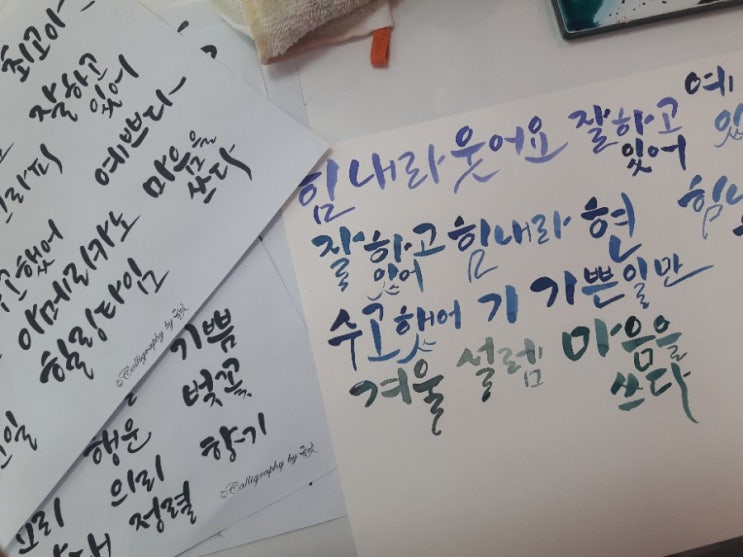 최고야
잘하고
있어
라떼
예쁘다
마음을
쓰다
수고했어
아메리카노
힐링타임
©Calligraphy by
기쁨
벚꽃
행운
향기
의리
정렬
©Calligraphy by
힘내라 웃어요 잘하고
있어
예
있
잘하고 힘내라 현
있어
힘내
수고했어 기 기쁜일만
겨울 설렘 마음을
쓰다